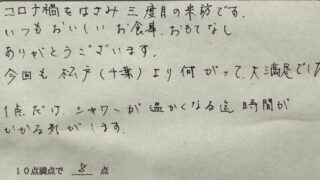 コロナ禍をはさみ三度目の来訪です。
いつもおいしいお食事、おもてなし
ありがとうございます。
今回も松戸(千葉)より伺がって、大満足でした
1点だけ、シャワーが温かくなる迄時間が
かかる気がします。
10点満点で 8 点